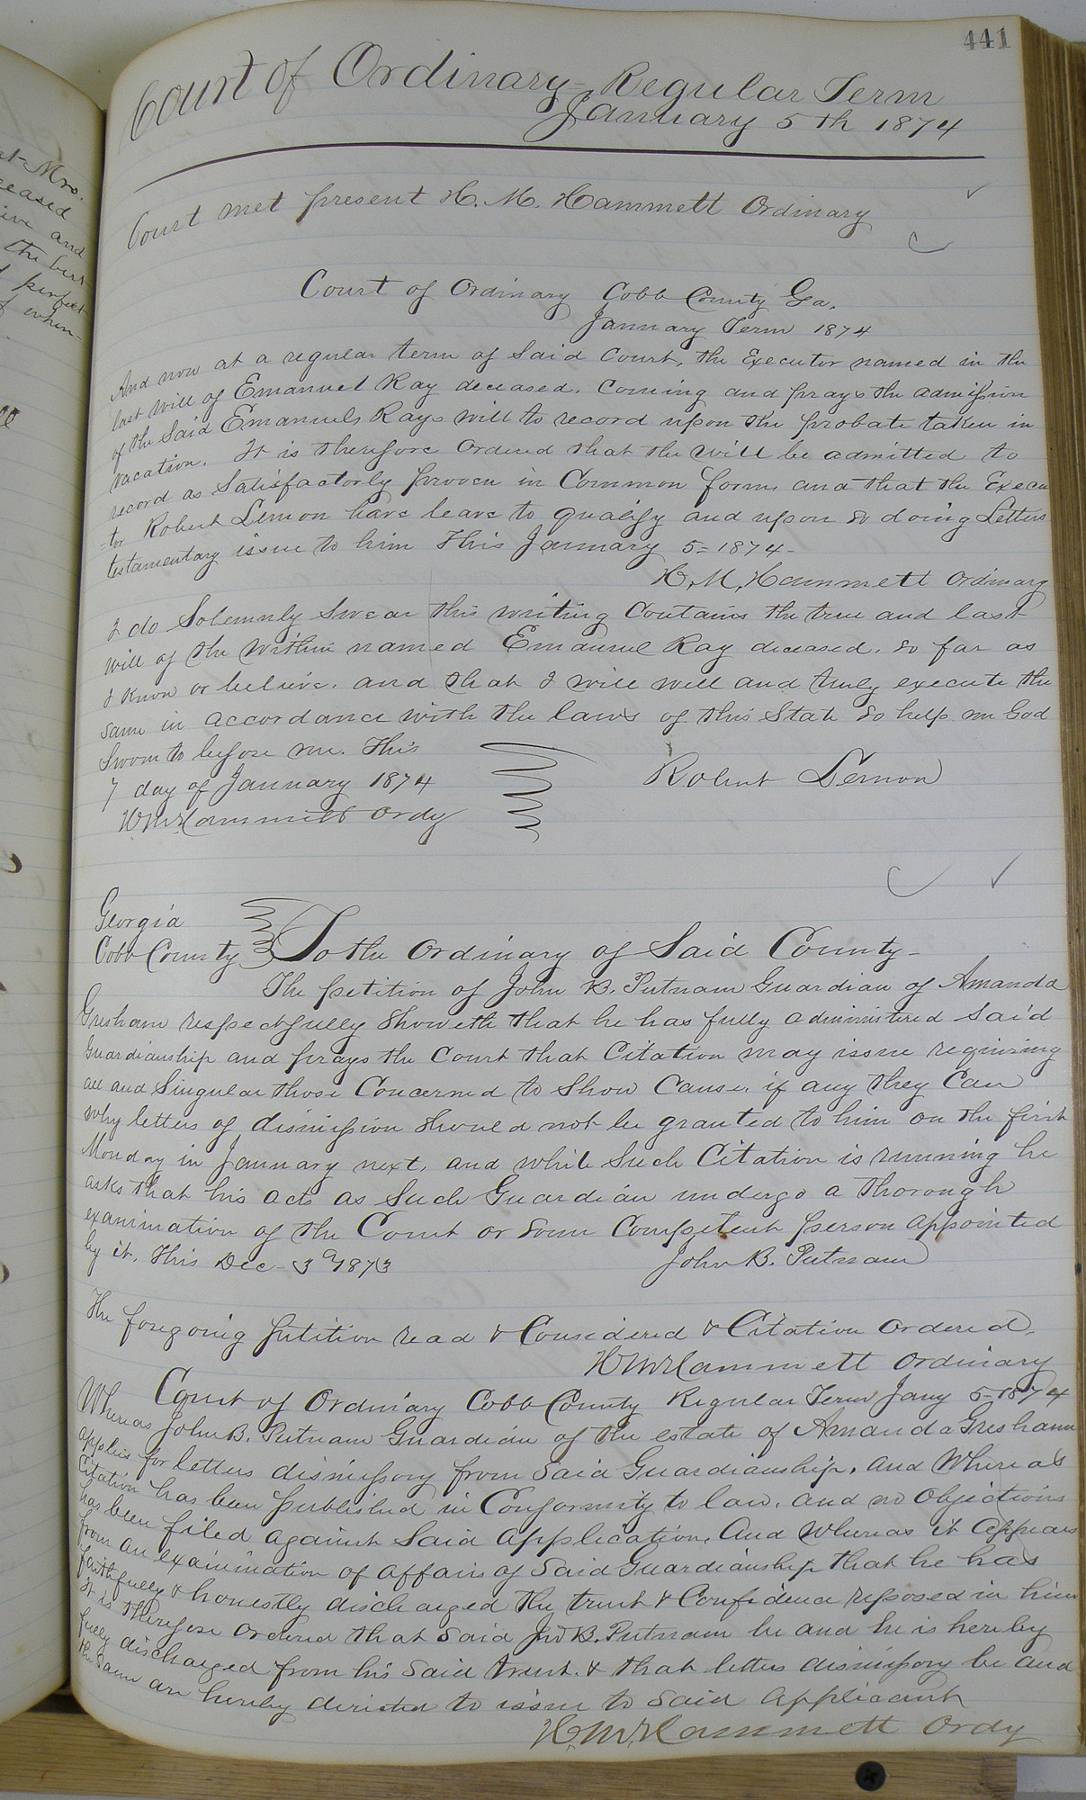 441
Court of Ordinary - Regular Term
January 5th 1874
Court met present H. M. Hammett Ordinary
Court of Ordinary Cobb County Ga.
January Term 1874
And now at a regular term of Said Court, the Executor named in the
last will of Emanuel Ray deceased. Coming and prays the admission
of the Said Emanuels Rays will to record upon the probate taken in
vacation. It is therefore Ordered that the will be admitted to
record as Satisfactorly proven in Common form and that the Execu
-tor Robert Lemon have leave to qualify and upon So doing Letters
testamentary issue to him This January 5= 1874-
H. M. Hammett Ordinary
I do Solemnly Swear this writing Contains the true and last
will of the Within named Emanuel Ray deceased. So far as
I know or believe. and that I will well and truly execute the
same in accordance with the laws of this State So help me God
Sworn to before me. This
7 day of January 1874
Robert Lemon
H M Hammett Ordy
Georgia
Cobb County To the Ordinary of Said County-
The petition of John B. Putnam Guardian of Amanda
Gresham respectfully Showeth that he has fully administered Said
Guardianship and prays the Court that Citation may issue requiring
all and Singular those Concerned to Show Cause, if any they Can
why letters of dismission Should not be granted to him on the first
Monday in January next, and while Such Citation is running he
asks that his acts as Such Guardian undergo a thorough
examination of the Court or Some Competent person appointed
by it. This Dec- 3d 1873
John B. Putnam
The foregoing petition read & Considered & Citation Ordered.
H M Hammett Ordinary
Court of Ordinary Cobb County Regular Term Jany 5-1874
Whereas John B. Putnam Guardian of the estate of Amanda Gresham
applies for letters dismissory from Said Guardianship. And Whereas
Citation has been published in Conformity to law. and no Objections
has been filed against Said Application. And Whereas it Appears
from an examination of affairs of Said Guardianship that he has
faithfully & honestly discharged the trust & Confidence reposed in him
it is therefore Ordered that Said Jno B. Putnam be and he is hereby
fully discharged from his Said trust. & that letters dismissory be and
the Same are hereby directed to issue to Said Applicant
H. M. Hammett Ordy